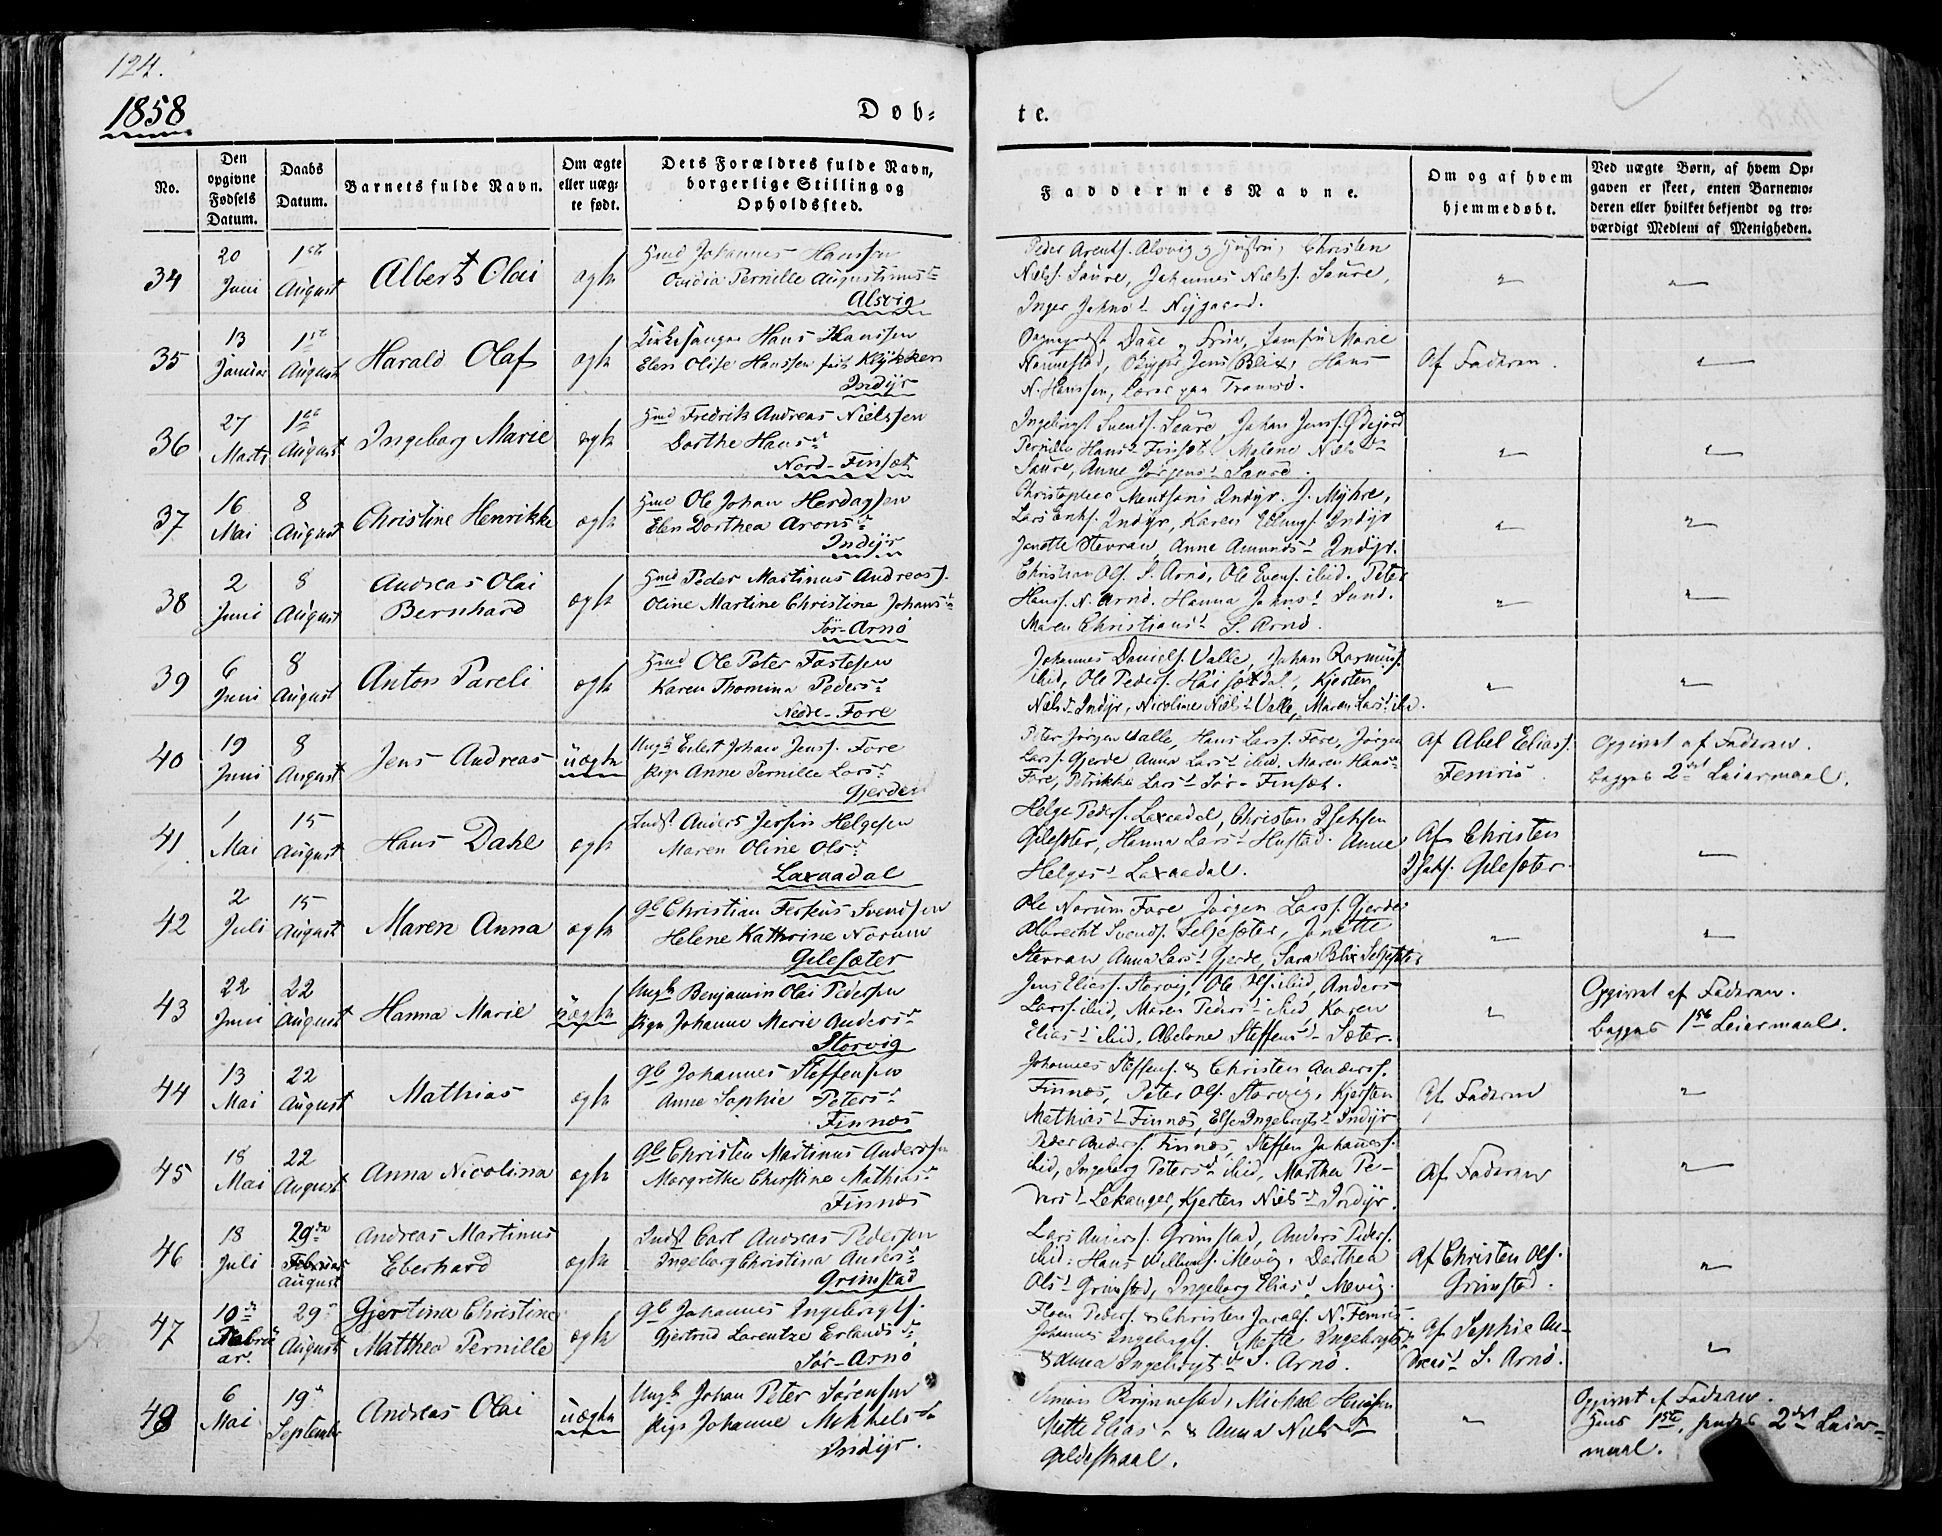 124.
1858
Døb-
te.
No.
Den opgivne Fødsels Datum.
Daabs Datum.
Barnets fulde Navn.
Om ægte eller uægte født.
Dets Forældres fulde Navn, borgerlige Stilling og Opholdssted.
Faddernes Navne.
Om og af hvem hjemmedøbt.
Ved uægte Børn, af hvem Opgaven er skeet, enten Barnemoderen eller hvilket bekjendt og troværdigt Medlem af Menigheden.
34 20 Juni 1ste August Albert Olai ægte
Hmd Johannes Hanssen
Ovidia Pernille Augustinusd
Alsvig
Peder Arents. Alsvig og Hustru, Christen
Niels. Saure, Johannes Niels. Saure,
Inger Johnsd Nygaard.
35 13 Januar 1ste August Harald Olaf ægte
Kirkesanger Hans Hanssen
Elen Olise Hanssen født Kløkken
Indyr
Daae og Frue, Jomfru Marie
Jens Blix, Hans
N. Hanssen, Tromsø.
Af Faderen.
36 27 Marts 1ste August Ingeborg Marie ægte
Hmd Fredrik Andreas Nielssen
Dorthe Hansd
Nord-Finsæt
Ingebrigt Svends. Saure Johan Jens.
Pernille Hansd Finsæt Malene Nielsd
Saure, Anne Jørgensd Saure.
37 16 Mai 8 August Christine Henrikke ægte
Hmd Ole Johan Herdagsen
Elen Dorthea Aronsd
Indyr
Indyr. J. Myhre,
Lars Eriks. Indyr, Karen Indyr
Janette Stevran, Anne Amundsd Indyr.
38 2 Juni 8 August Andreas Olai
Bernhard ægte
Hmd Peder Martinus Andreas.
Oline Martine Christine Johansd
Sør-Arnø
Christian Ols. S. Arnø, Ole Evens. ibid. Peter
Hans. N. Arnø. Hanna Johnsd Sund.
Maren Christiansd S. Arnø.
39 6 Juni 8 August Anton Pareli ægte
Hmd Ole Peter Fastesen
Karen Thomina Pedersd
Nedre-Fore
Johannes Daniels. Valle, Johan Rasmus.
ibid, Ole Peders. Kjersten
Nielsd Indyr, Nicoline Nielsd Valle, Maren Larsd ibid.
40 19 Juni 8 August Jens Andreas uægte
Ungk Eilert Johan Jens. Fore
Pige Anne Pernille Larsd
Gjerde
Peter Jørgen Valle, Hans Lars. Fore, Jørgen
Lars. Gjerde Anna Larsd ibid. Maren Hansd
Fore, Petrikke Larsd Sør-Finsæt.
Af Abel Elias.
Femris
Opgivet af Faderen.
Begges 2det Leiermaal.
41 1 Mai 15 August Hans Dahl ægte
Inds. Anders Jersin Helgesen
Maren Oline Olsd
Laxaadal
Helge Peders. Laxaadal, Christen Isaksen
Gilesæter, Hanna Larsd Hustad. Anne
Helgesd Laxaadal.
Af Christen
Isaks. Gilesæter.
42 2 Juli 15 August Maren Anna ægte
Gb Christian Ferkus Svendsen
Helene Kathrine Norum
Gilesæter
Ole Norum Fore Jørgen Lars. Gjerde
Albrecht Svends. Seljesæter, Janette
Stevran, Anna Larsd Gjerde, Sara Blix Seljesæter
43 22 Juni 22 August Hanna Marie uægte
Ungk Benjamin Olai Pedersen
Pige Johanne Marie Andersd
Storvig
Jens Elias. Storvig, Ole Ols. ibid, Anders
Lars. ibid, Maren Pedersd ibid, Karen
Eliasd ibid, Abelone Steffensd Sæter.
Opgivet af Faderen.
Begges 1ste Leiermaal.
44 13 Mai 22 August Mathias ægte
Gb Johannes Steffensen
Anne Sophie Petersd
Finnæs
Johannes Steffens. & Christen Anders.
Finnæs, Peter Ols. Storvig, Kjersten
Mathiasd Finnæs, Else Ingebrigtsd Indyr
Af Faderen
45 18 Mai 22 August Anna Nicolina ægte
Gb Christen Martinus Anderssen
Margrethe Christine Mathiasd
Finnæs
Peder Anders. Finnæs, Steffen Johannes.
ibid, Ingeborg Petersd ibid, Marthea Pe-
dersd Lekanger, Kjersten Nielsd Indyr.
Af Faderen
46 18 Juli 29de Februar August Andreas Martinus
Eberhard ægte
Inds. Carl Andreas Pedersen
Ingeborg Christina Andersd
Grimstad
Lars Anders. Grimstad, Anders Peders.
ibid. Hans Willums. Mevig, Dorthea
Olsd Grimstad, Ingeborg Eliasd Mevig.
Af Christen Ols.
Grimstad.
47 10de Februar. 29de August Gjertina Christine
Matthea Pernille ægte
Gb Johannes Ingebrigts.
Gjertrud Lorentze Erlandsd
Sør-Arnø
Peders. & Christen N. Femris
Johannes Ingebrigts. Mette Ingebrigtsd
& Anna Ingebrigtsd S. Arnø.
Af Sophie An-
dreasd S. Arnø.
48 6 Mai 19de September Andreas Olai uægte
Ungk Johan Peter Sørensen
Pige Johanne Mikkelsd
Indyr.
Simon Brynnestad, Michael Hanssen
Mette Eliasd & Anna Nielsd
Gildeskaal.
Opgivet af Faderen.
Hans 1ste, hendes 2det Leier-
maal.